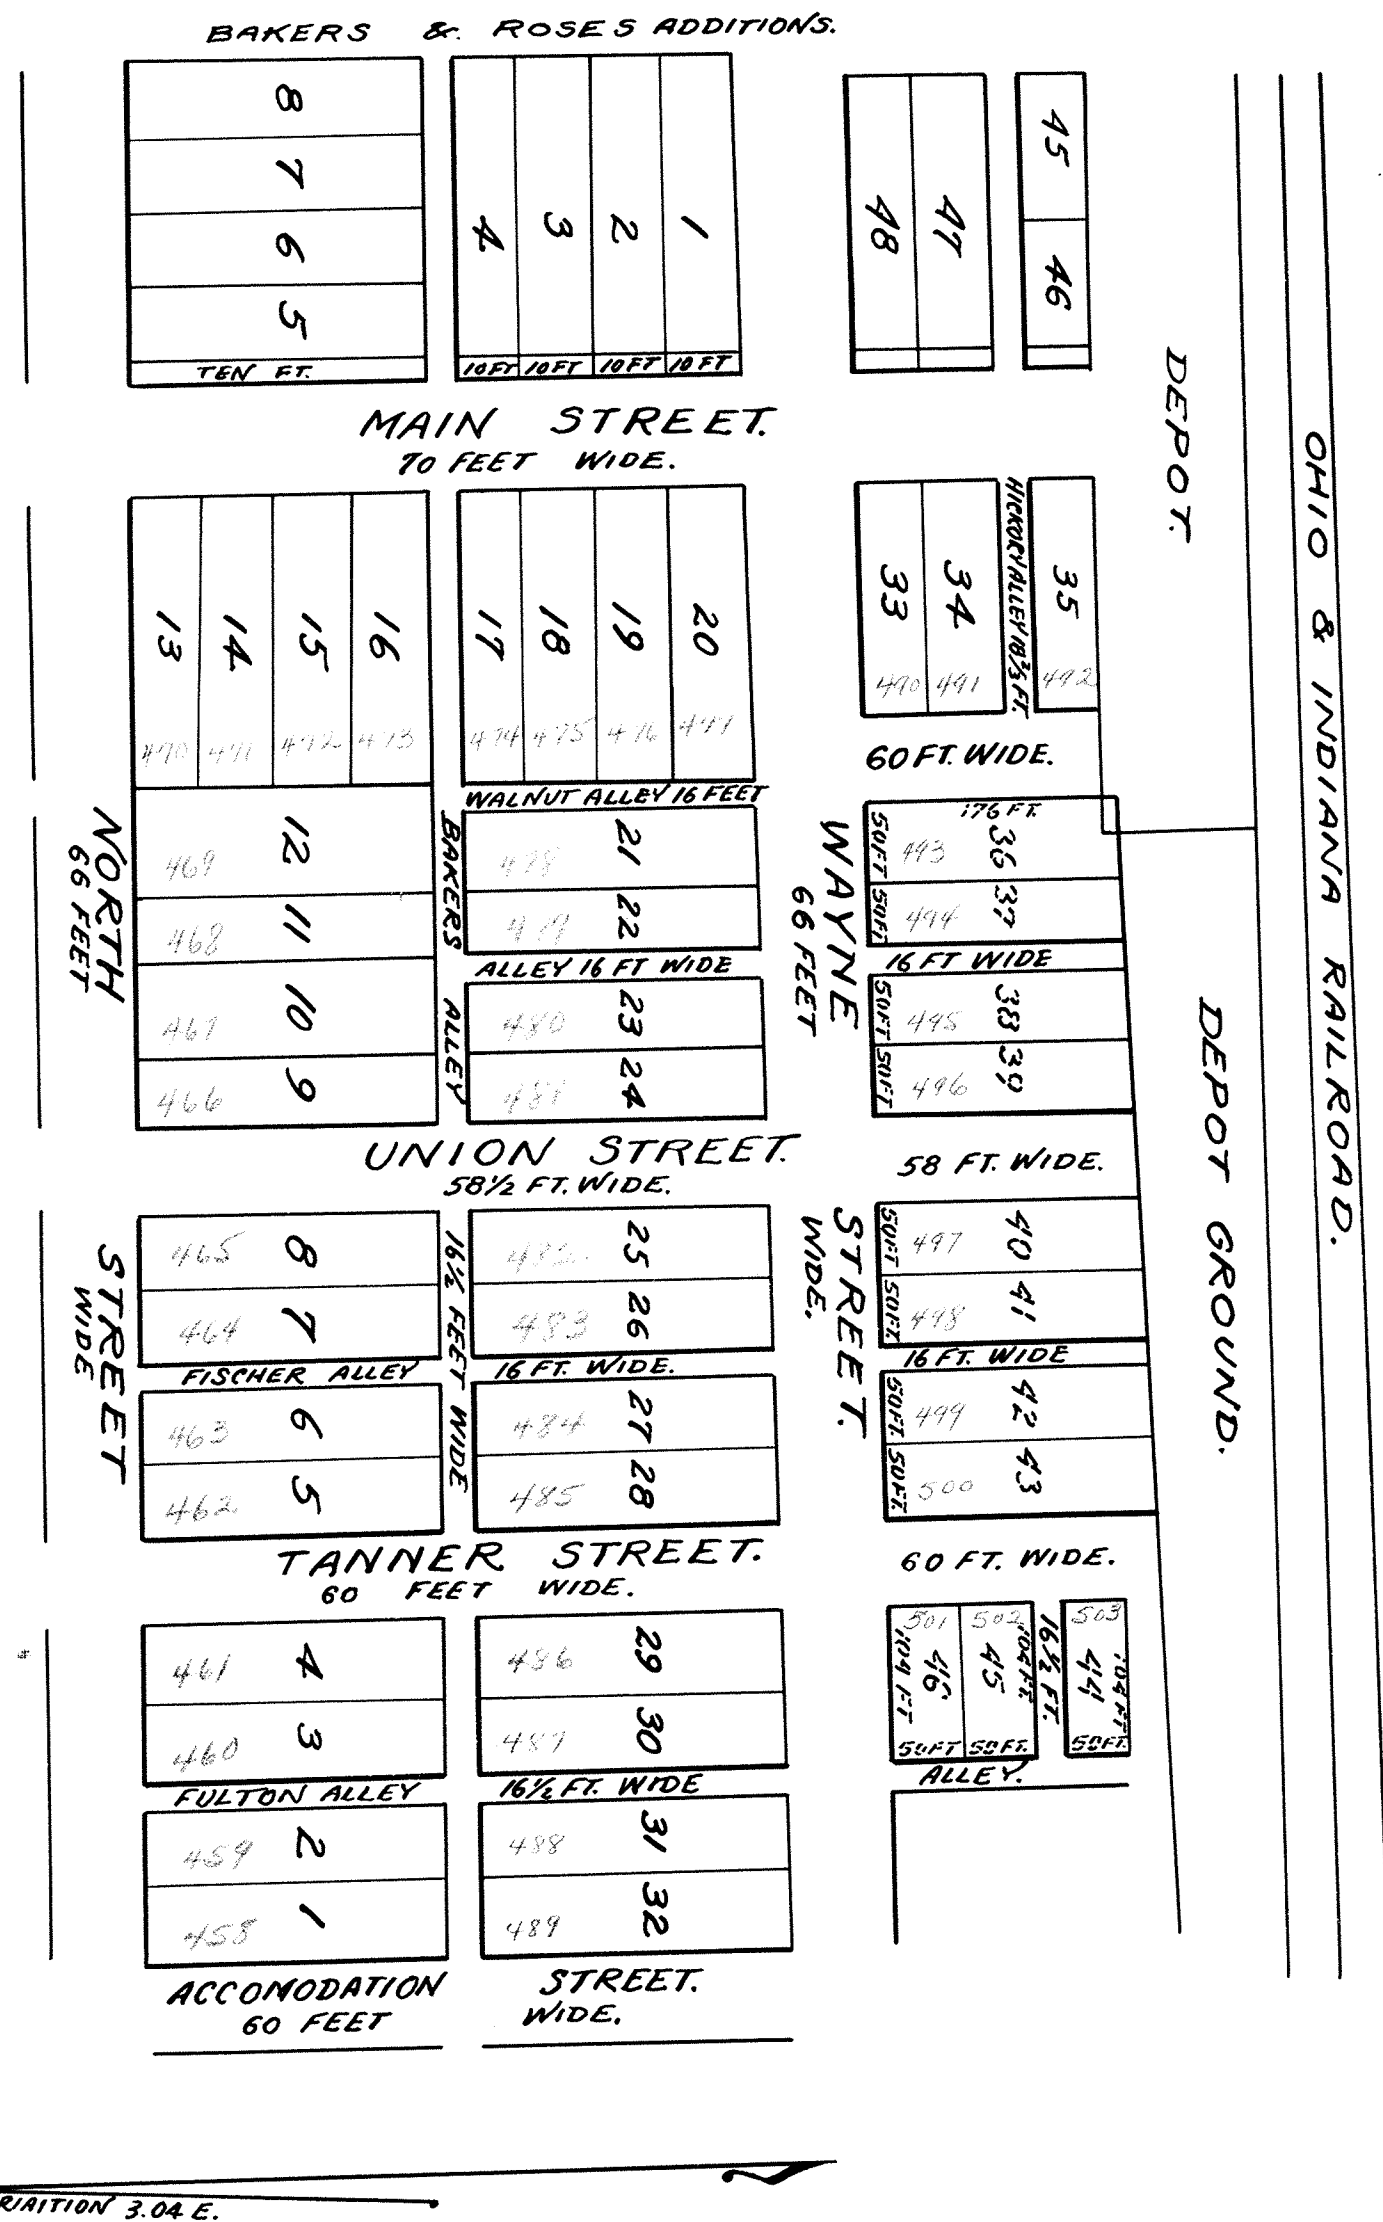 BAKERS & ROSES ADDITIONS.
8
7
6
5
TEN FT.
4 3 2 1
10 FT 10 FT 10 FT 10 FT
48 47
45
46
MAIN STREET.
70 FEET WIDE.
DEPOT.
OHIO & INDIANA RAILROAD.
13 14 15 16
470 471 472 473
17 18 19 20
474 475 476 477
33 34
490 491
HICKORY ALLEY 18⅔ FT.
35
492
60 FT. WIDE.
WALNUT ALLEY 16 FEET
NORTH STREET
66 FEET WIDE
469 12
468 11
467 10
466 9
BAKERS ALLEY
16½ FEET WIDE
478 21
479 22
ALLEY 16 FT WIDE
480 23
481 24
WAYNE STREET.
66 FEET WIDE.
176 FT.
50FT 493 36
50FT 494 37
16 FT WIDE
50FT 495 38
50FT 496 39
DEPOT GROUND.
UNION STREET.
58½ FT. WIDE.
58 FT. WIDE.
465 8
464 7
FISCHER ALLEY
463 6
462 5
482 25
483 26
16 FT. WIDE.
484 27
485 28
50FT 497 40
50FT. 498 41
16 FT. WIDE
50FT. 499 42
50FT. 500 43
TANNER STREET.
60 FEET WIDE.
60 FT. WIDE.
461 4
460 3
FULTON ALLEY
459 2
458 1
486 29
487 30
16½ FT. WIDE
488 31
489 32
501 502 503
104 FT 46 45 104 FT. 16½ FT. 44 104 FT
50FT 50FT. 50FT.
ALLEY.
ACCOMODATION STREET.
60 FEET WIDE.
RIAITION 3.04 E.